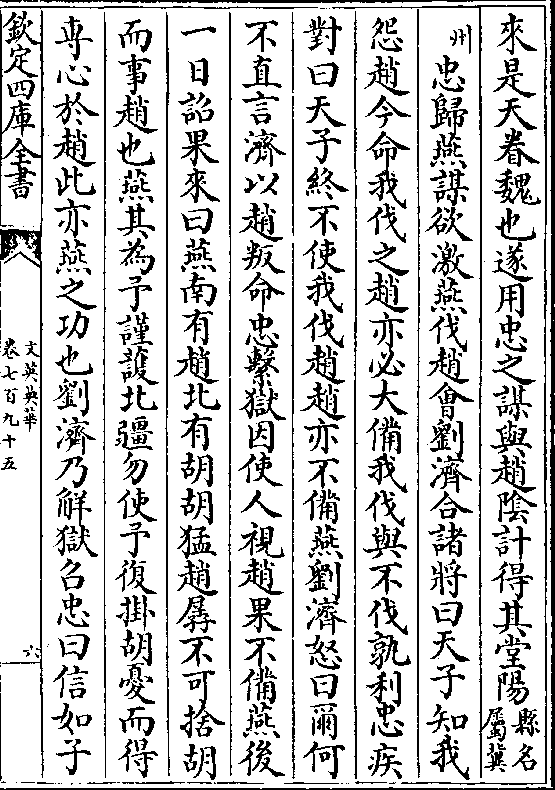 來是天眷魏也遂用忠之謀與趙陰計得其堂陽縣名屬冀
州忠歸燕謀欲激燕伐趙會劉濟合諸將曰天子知我
怨趙今命我伐之趙亦必大備我伐與不伐孰利忠疾
對曰天子終不使我伐趙趙亦不備燕劉濟怒曰爾何
不直言濟以趙叛命忠繫獄因使人視趙果不備燕後
一日詔果來曰燕南有趙北有胡胡猛趙孱不可捨胡
而事趙也燕其為予謹護北疆勿使予復掛胡憂而得
專心於趙此亦燕之功也劉濟乃解獄召忠曰信如子
欽定四庫全書
文苑英華
卷七百九十五
六